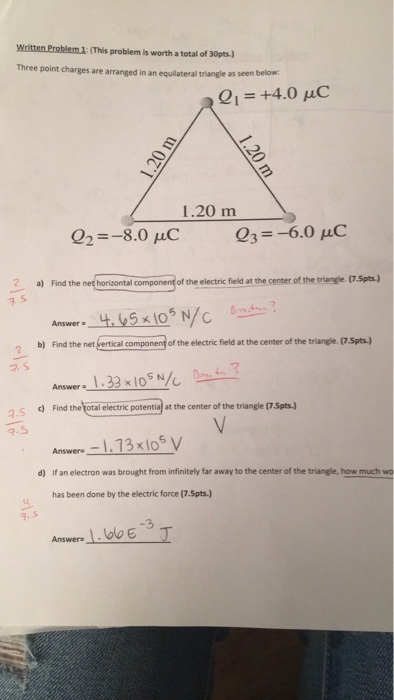 Written Problem 1: (This problem is worth a total of 30pts.)
Three point charges are arranged in an equilateral triangle as seen below:
Q1 = +4.0 μC
1.20 m
1.20 m
1.20 m
Q2 = −8.0 μC
Q3 = −6.0 μC
2/7.5
a) Find the net horizontal component of the electric field at the center of the triangle. (7.5pts.)
Answer = 4.65 x 10^5 N/C
b) Find the net vertical component of the electric field at the center of the triangle. (7.5pts.)
2/7.5
Answer = 1.33 x 10^5 N/C
7.5/7.5
c) Find the total electric potential at the center of the triangle (7.5pts.)
V
Answer= −1.73x10^5 V
d) If an electron was brought from infinitely far away to the center of the triangle, how much wo
has been done by the electric force (7.5pts.)
Answer= 1.66E^-3 J